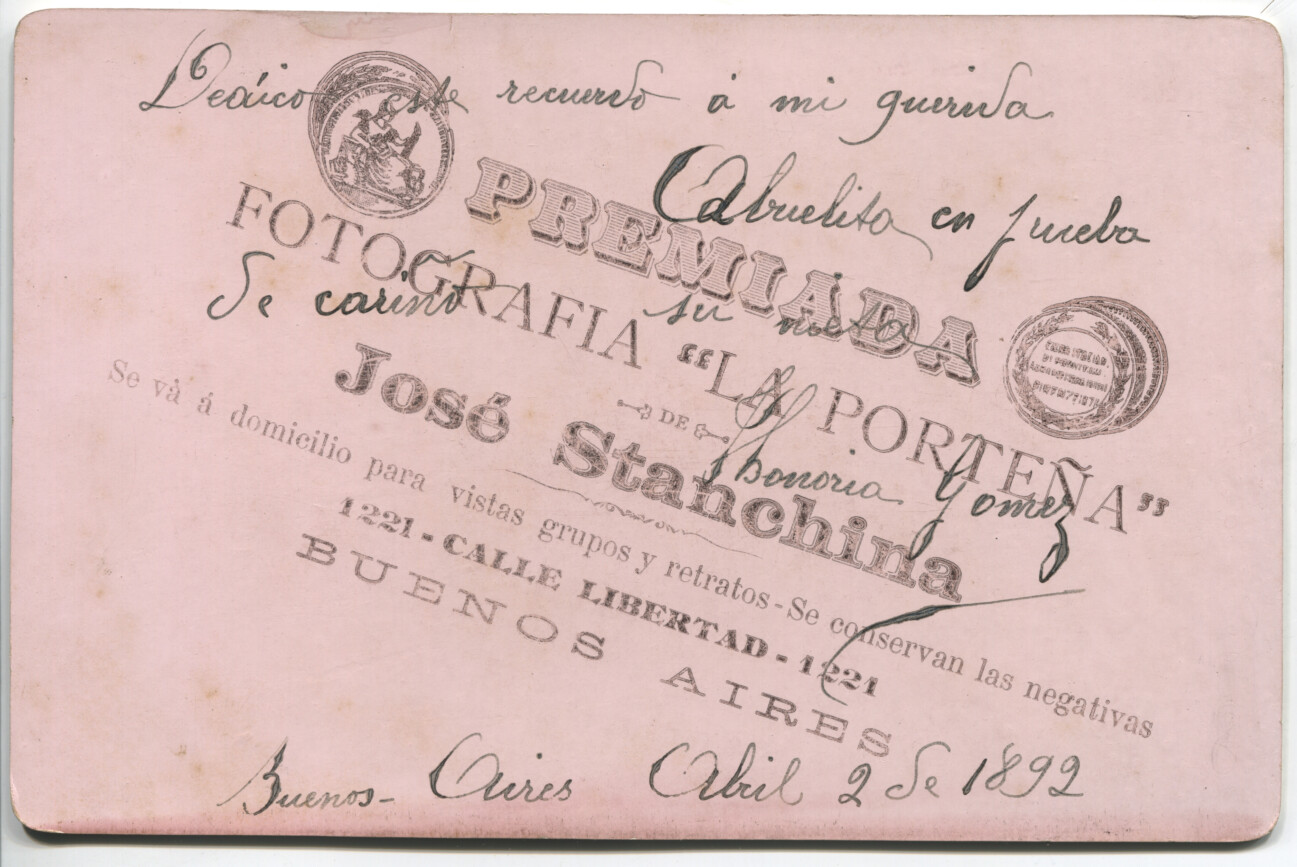 Dedico este recuerdo á mi querida
Abuelita en prueba
de cariño su nieta
Honoria Gomez
Buenos-Aires Abril 2 de 1892
PREMIADA
FOTOGRAFIA “LA PORTEÑA”
DE
José Stanchina
Se và á domicilio para vistas grupos y retratos - Se conservan las negativas
1221 - CALLE LIBERTAD - 1221
BUENOS AIRES